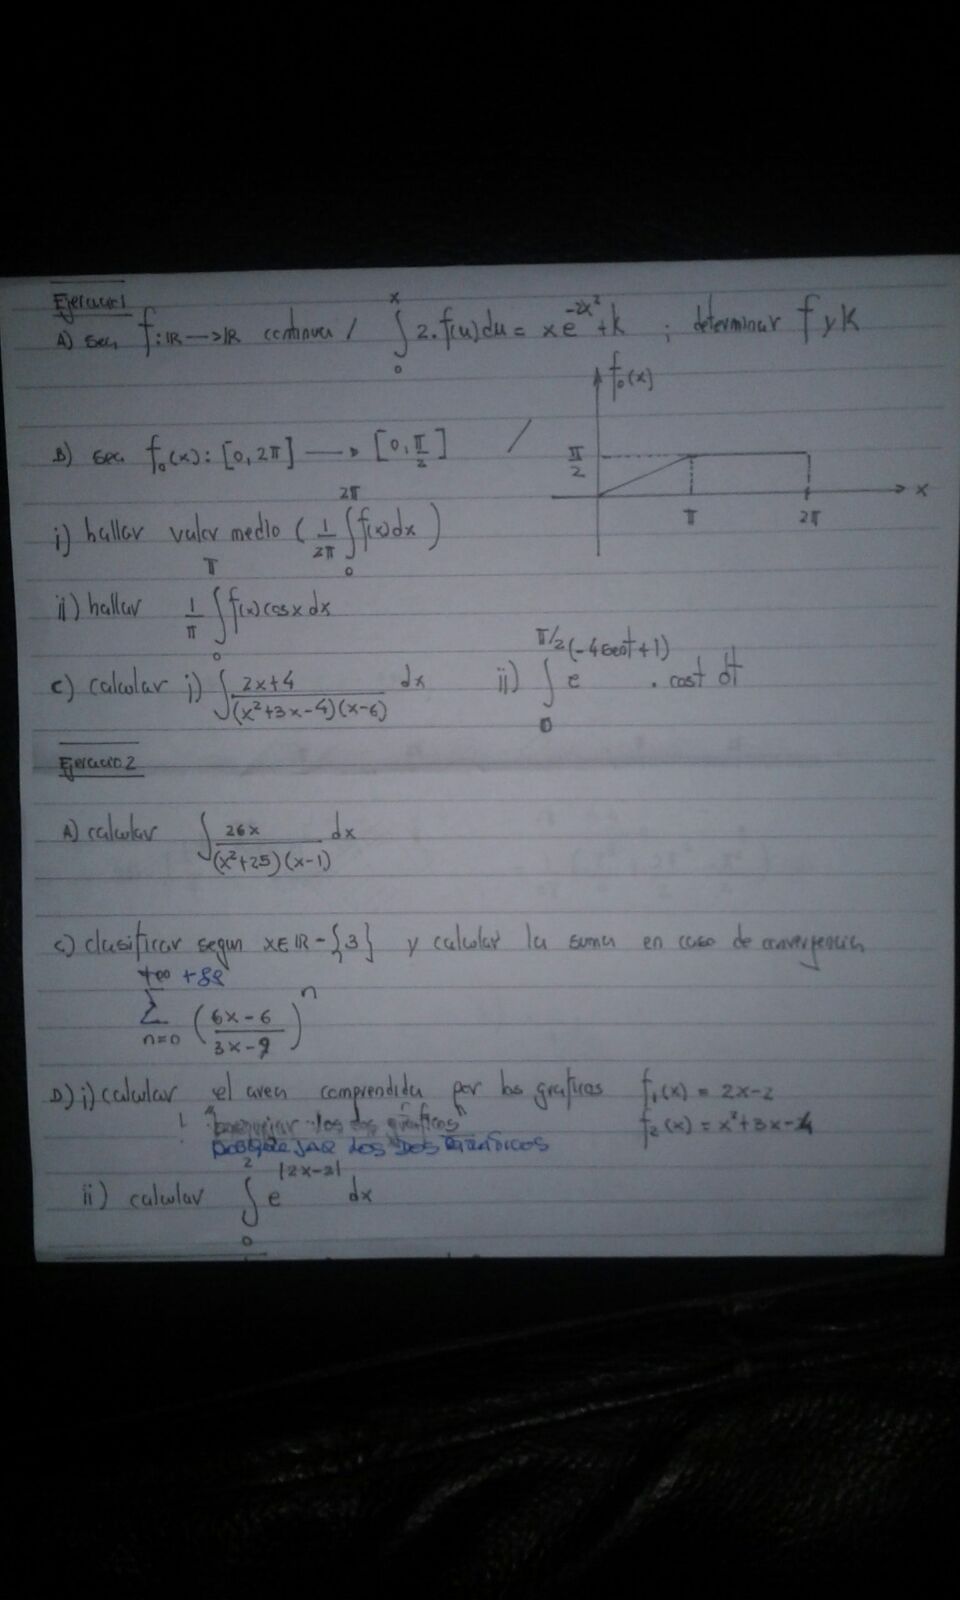 Ejercicio 1
A) sea f: ℝ → ℝ continua / ∫₀ˣ 2.f(u)du = x e^(-2x²) + k ; determinar f y K
f₀(x)
B) sea f₀(x): [0, 2π] → [0, π/2] /
π/2
x
π 2π
i) hallar valor medio ( 1/2π ∫₀^2π f(x)dx )
ii) hallar 1/π ∫₀^π f(x) cosx dx
c) calcular i) ∫ (2x+4)/((x²+3x-4)(x-6)) dx ii) ∫₀^(π/2) e^(-4sent+1) . cost dt
Ejercicio 2
A) calcular ∫ 26x/((x²+25)(x-1)) dx
c) clasificar segun x∈ℝ-{3} y calcular la suma en caso de convergencia
+∞
∑ n=0 ((6x-6)/(3x-9))ⁿ
D) i) calcular el area comprendida por las graficas f₁(x) = 2x-2
f₂(x) = x²+3x-4
LOS DOS GRÁFICOS
ii) calcular ∫₀² e^|2x-2| dx